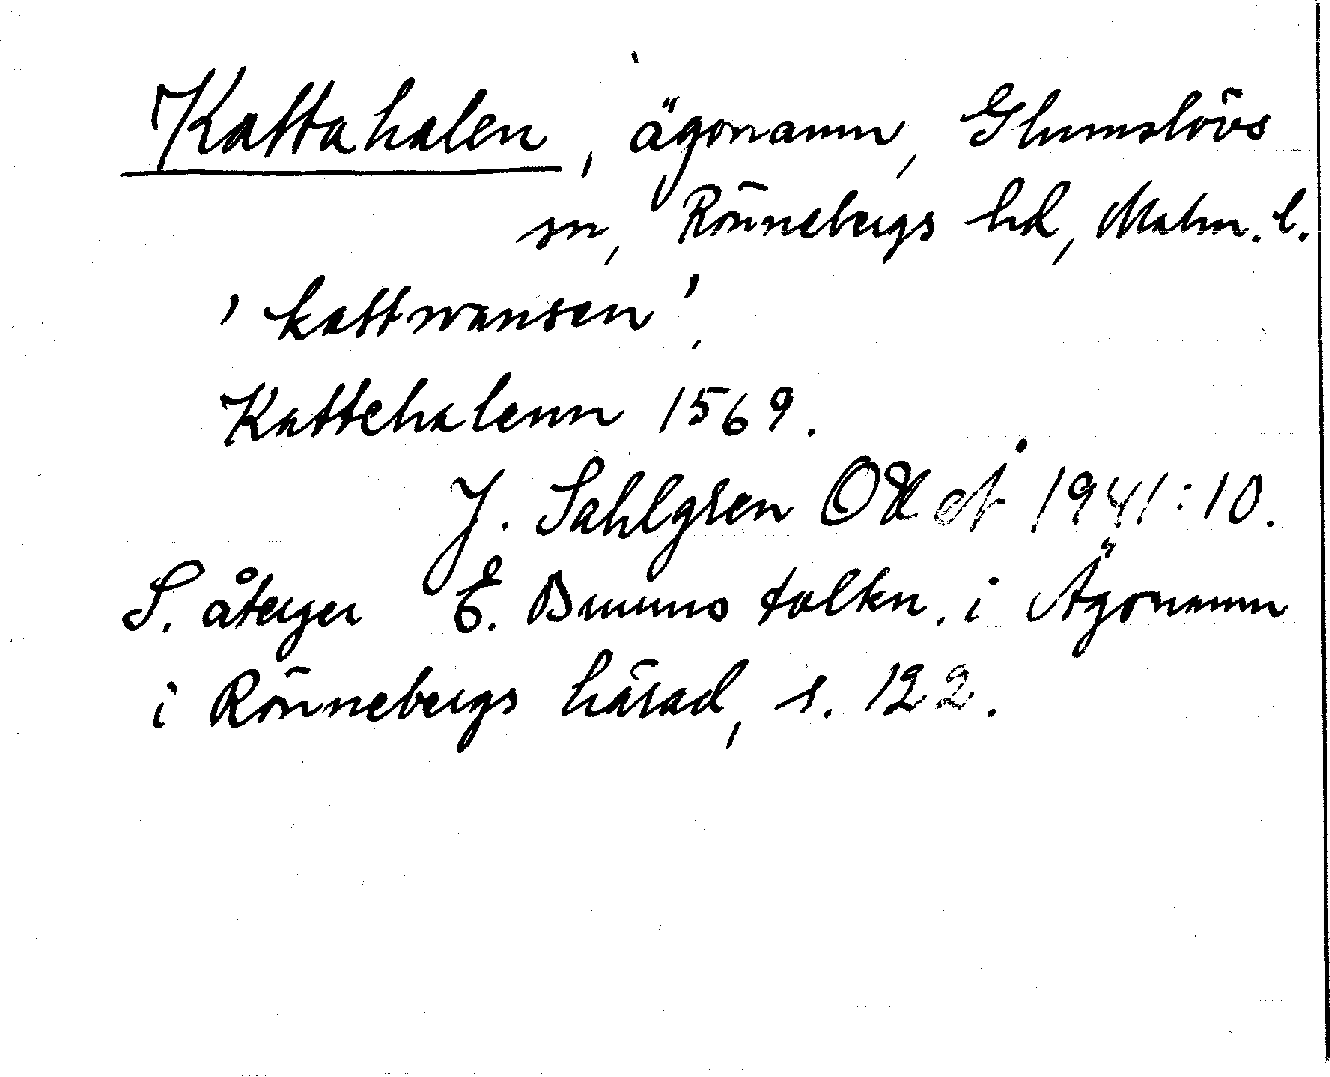 Kattahalen, ägonamn, Glumslövs
sn, Rönnebergs hd, Malm. l.
'kattsvansen',
Kattehalenn 1569.
J. Sahlgren 1941:10.
S. återger E. Bruuns tolkn. i Ägonamn
i Rönnebergs härad, s. 122.